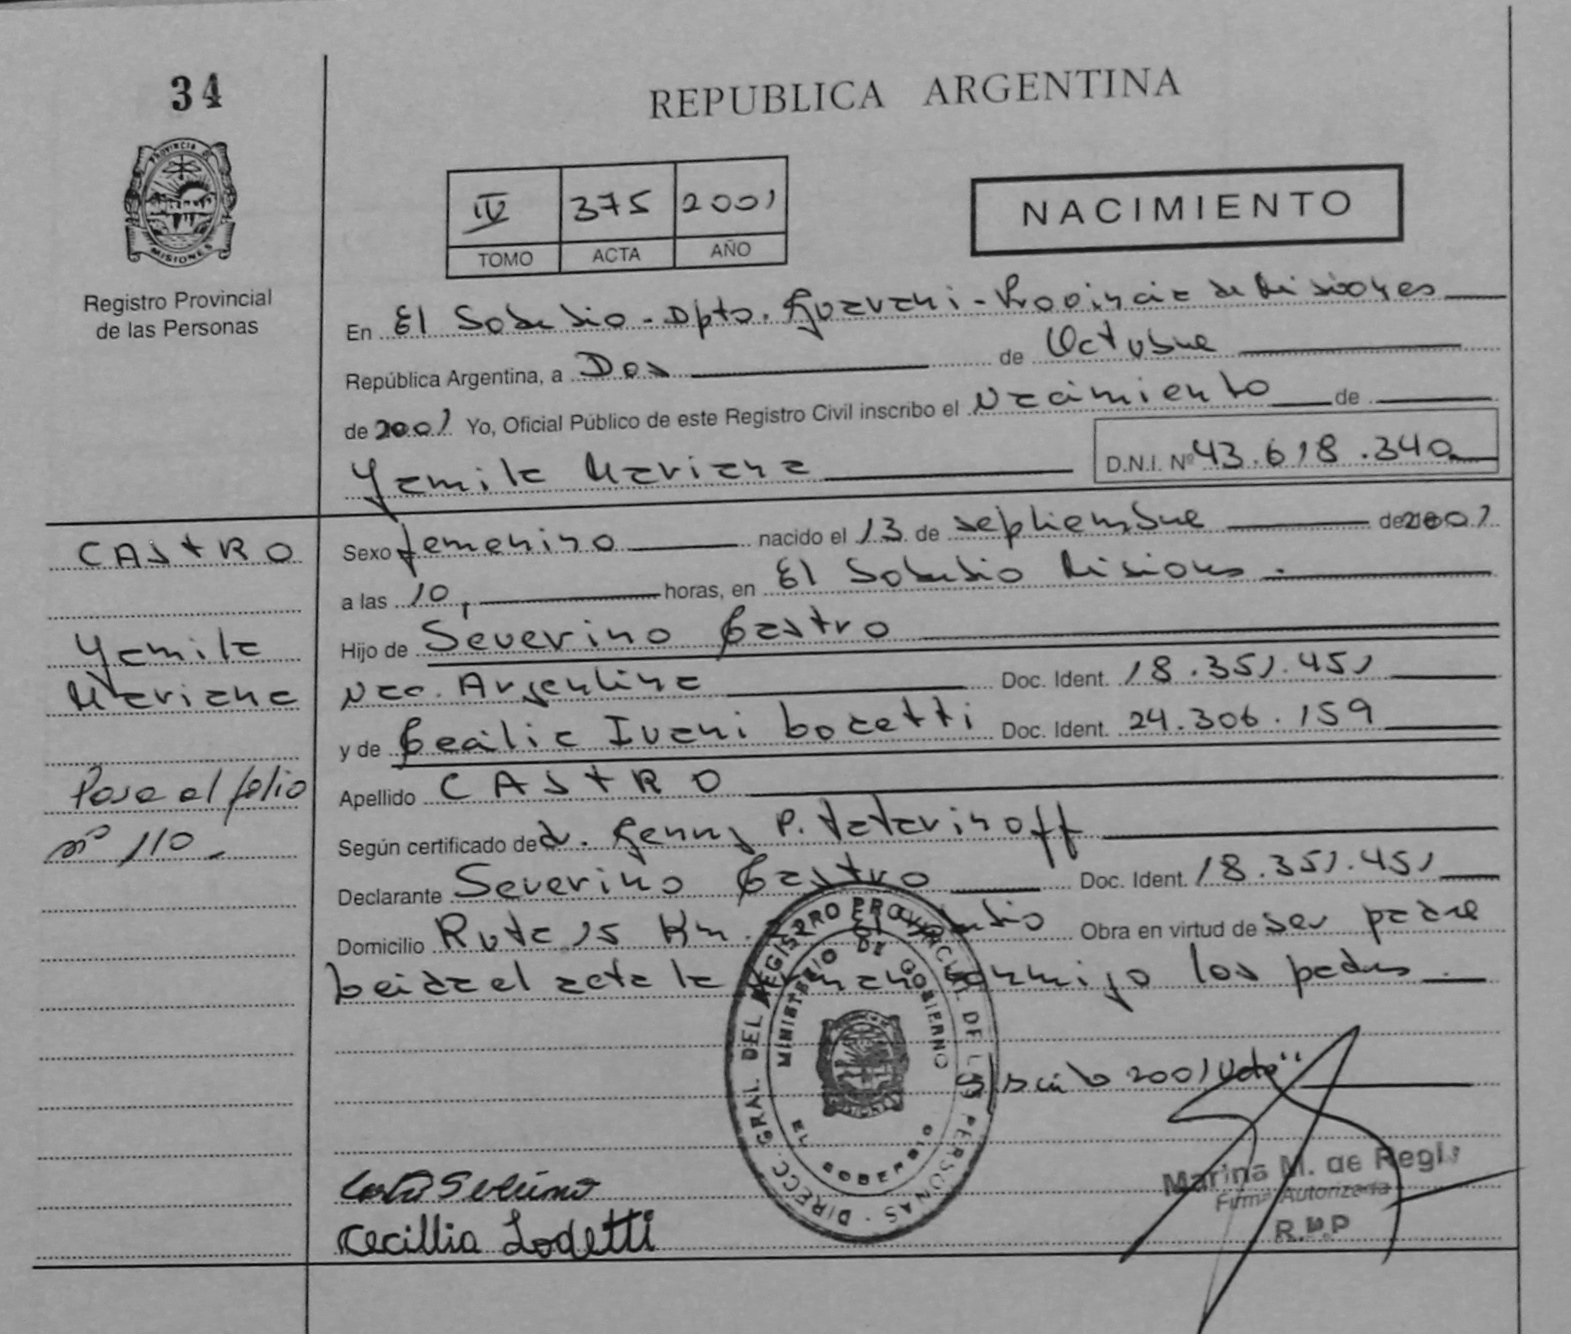 34
REPUBLICA ARGENTINA
PROVINCIA DE
MISIONES
Registro Provincial
de las Personas
IV 375 2001
TOMO ACTA AÑO
NACIMIENTO
En El Soberbio - Dpto. Guarani - Provincia de Misiones
República Argentina, a Dos de Octubre
de 2001 Yo, Oficial Público de este Registro Civil inscribo el Nacimiento de
Yamila Mariana
D.N.I. Nº 43.618.340
CASTRO
Yamila
Mariana
Pasa al folio
nº 110
Sexo femenino nacido el 13 de septiembre de 2001
a las 10, horas, en El Soberbio Misiones
Hijo de Severino Castro
Nac. Argentina Doc. Ident. 18.351.451
y de Cecilia Ivani Lodetti Doc. Ident. 24.306.159
Apellido CASTRO
Según certificado de d. Genny P. Tatarinoff
Declarante Severino Castro Doc. Ident. 18.351.451
Domicilio Ruta 15 Km. El Soberbio Obra en virtud de ser padre
Leida el acta la firman conmigo los padres
2001 Vale"
DIRECC. GRAL. DEL REGISTRO PROVINCIAL DE LAS PERSONAS
MINISTERIO DE GOBIERNO
EL SOBERBIO
MISIONES
Castro Severino
Cecillia Lodetti
Marina M. de Regis
Firma Autorizada
R.P.P